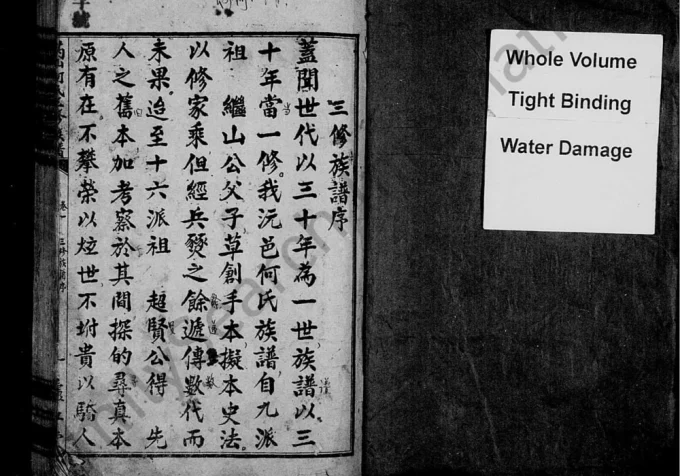 三修族譜序
蓋聞世代以三十年為一世族譜以三
十年當一修。我沅邑何氏族譜自九派
祖　繼山公父子草創手本擬本史法。
以修家乘但經兵燹之餘遞傳數代而
未果。迨至十六派祖　超賢公得　先
人之舊本加考察於其間探的尋真本
原有在。不攀榮以炫世不坿貴以驕人
卷一
三修族譜序
一
Whole Volume
Tight Binding
Water Damage